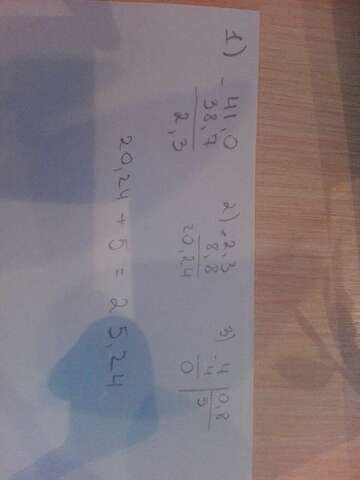 1) - 41,0
38,7
2,3
2) × 2,3
8,8
20,24
3) -4 | 0,8
4 | 5
0
20,24 + 5 = 25,24